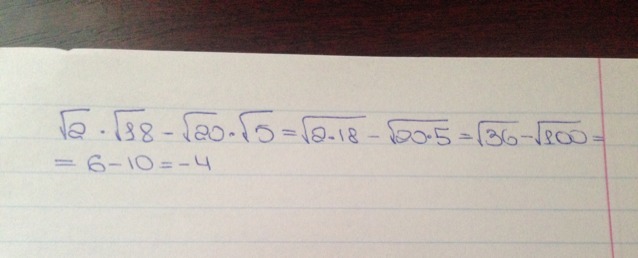 √2 · √18 - √20 · √5 = √2·18 - √20·5 = √36 - √100 =
= 6 - 10 = -4